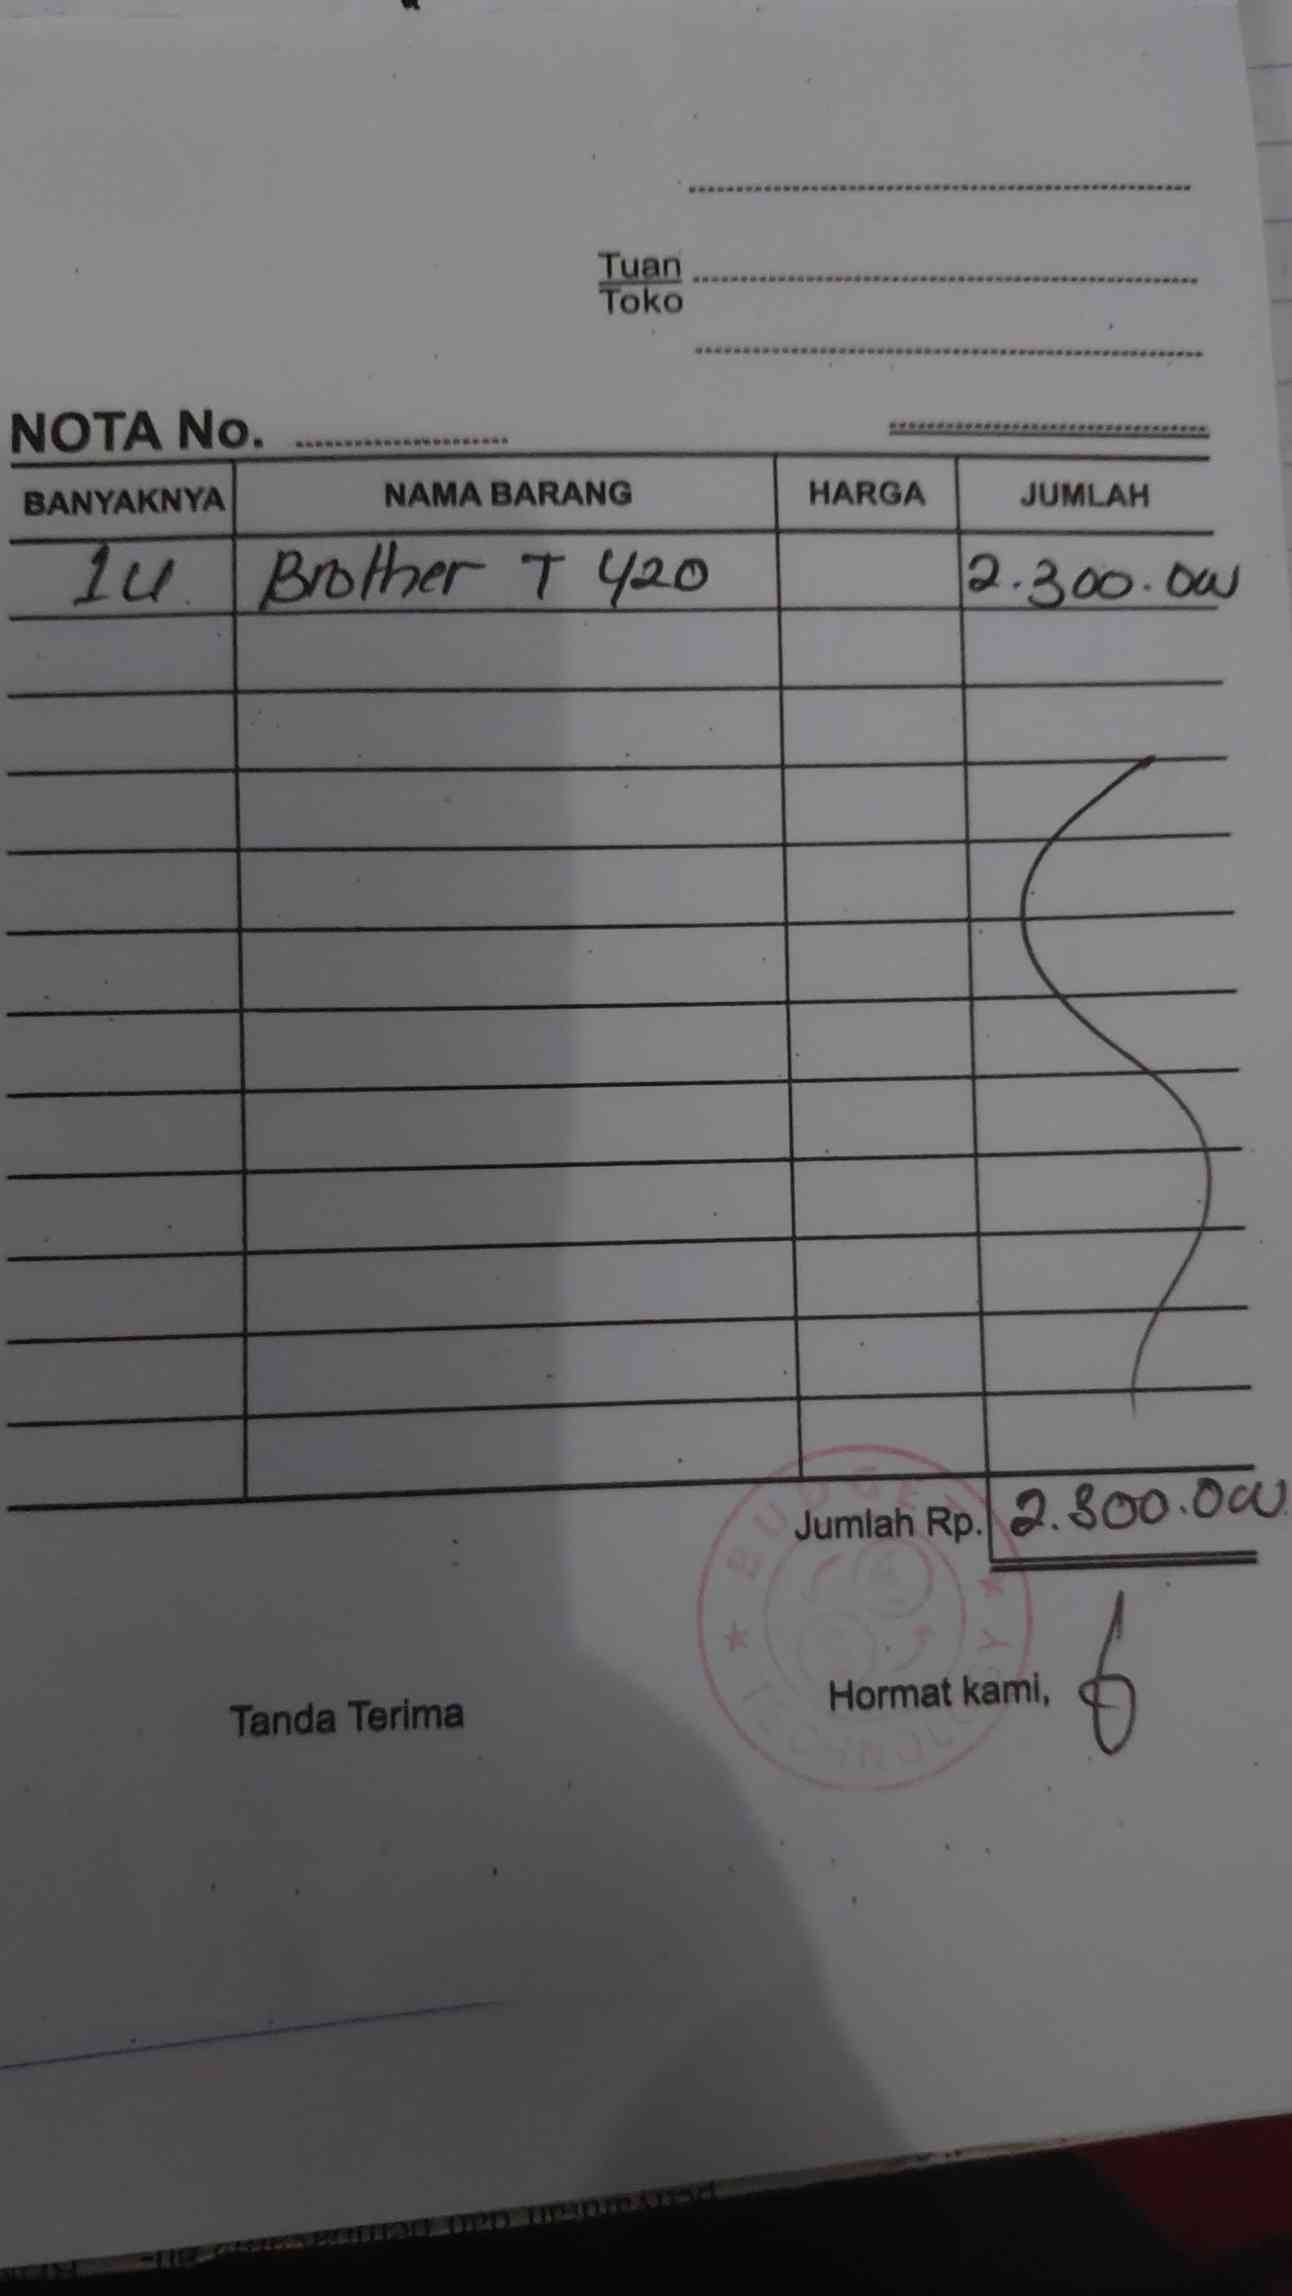 Tuan
Toko
NOTA No.
BANYAKNYA NAMA BARANG HARGA JUMLAH
1U Brother T 420 2.300.000
Jumlah Rp. 2.300.000
BUDGET TECHNOLOGY
Tanda Terima Hormat kami,